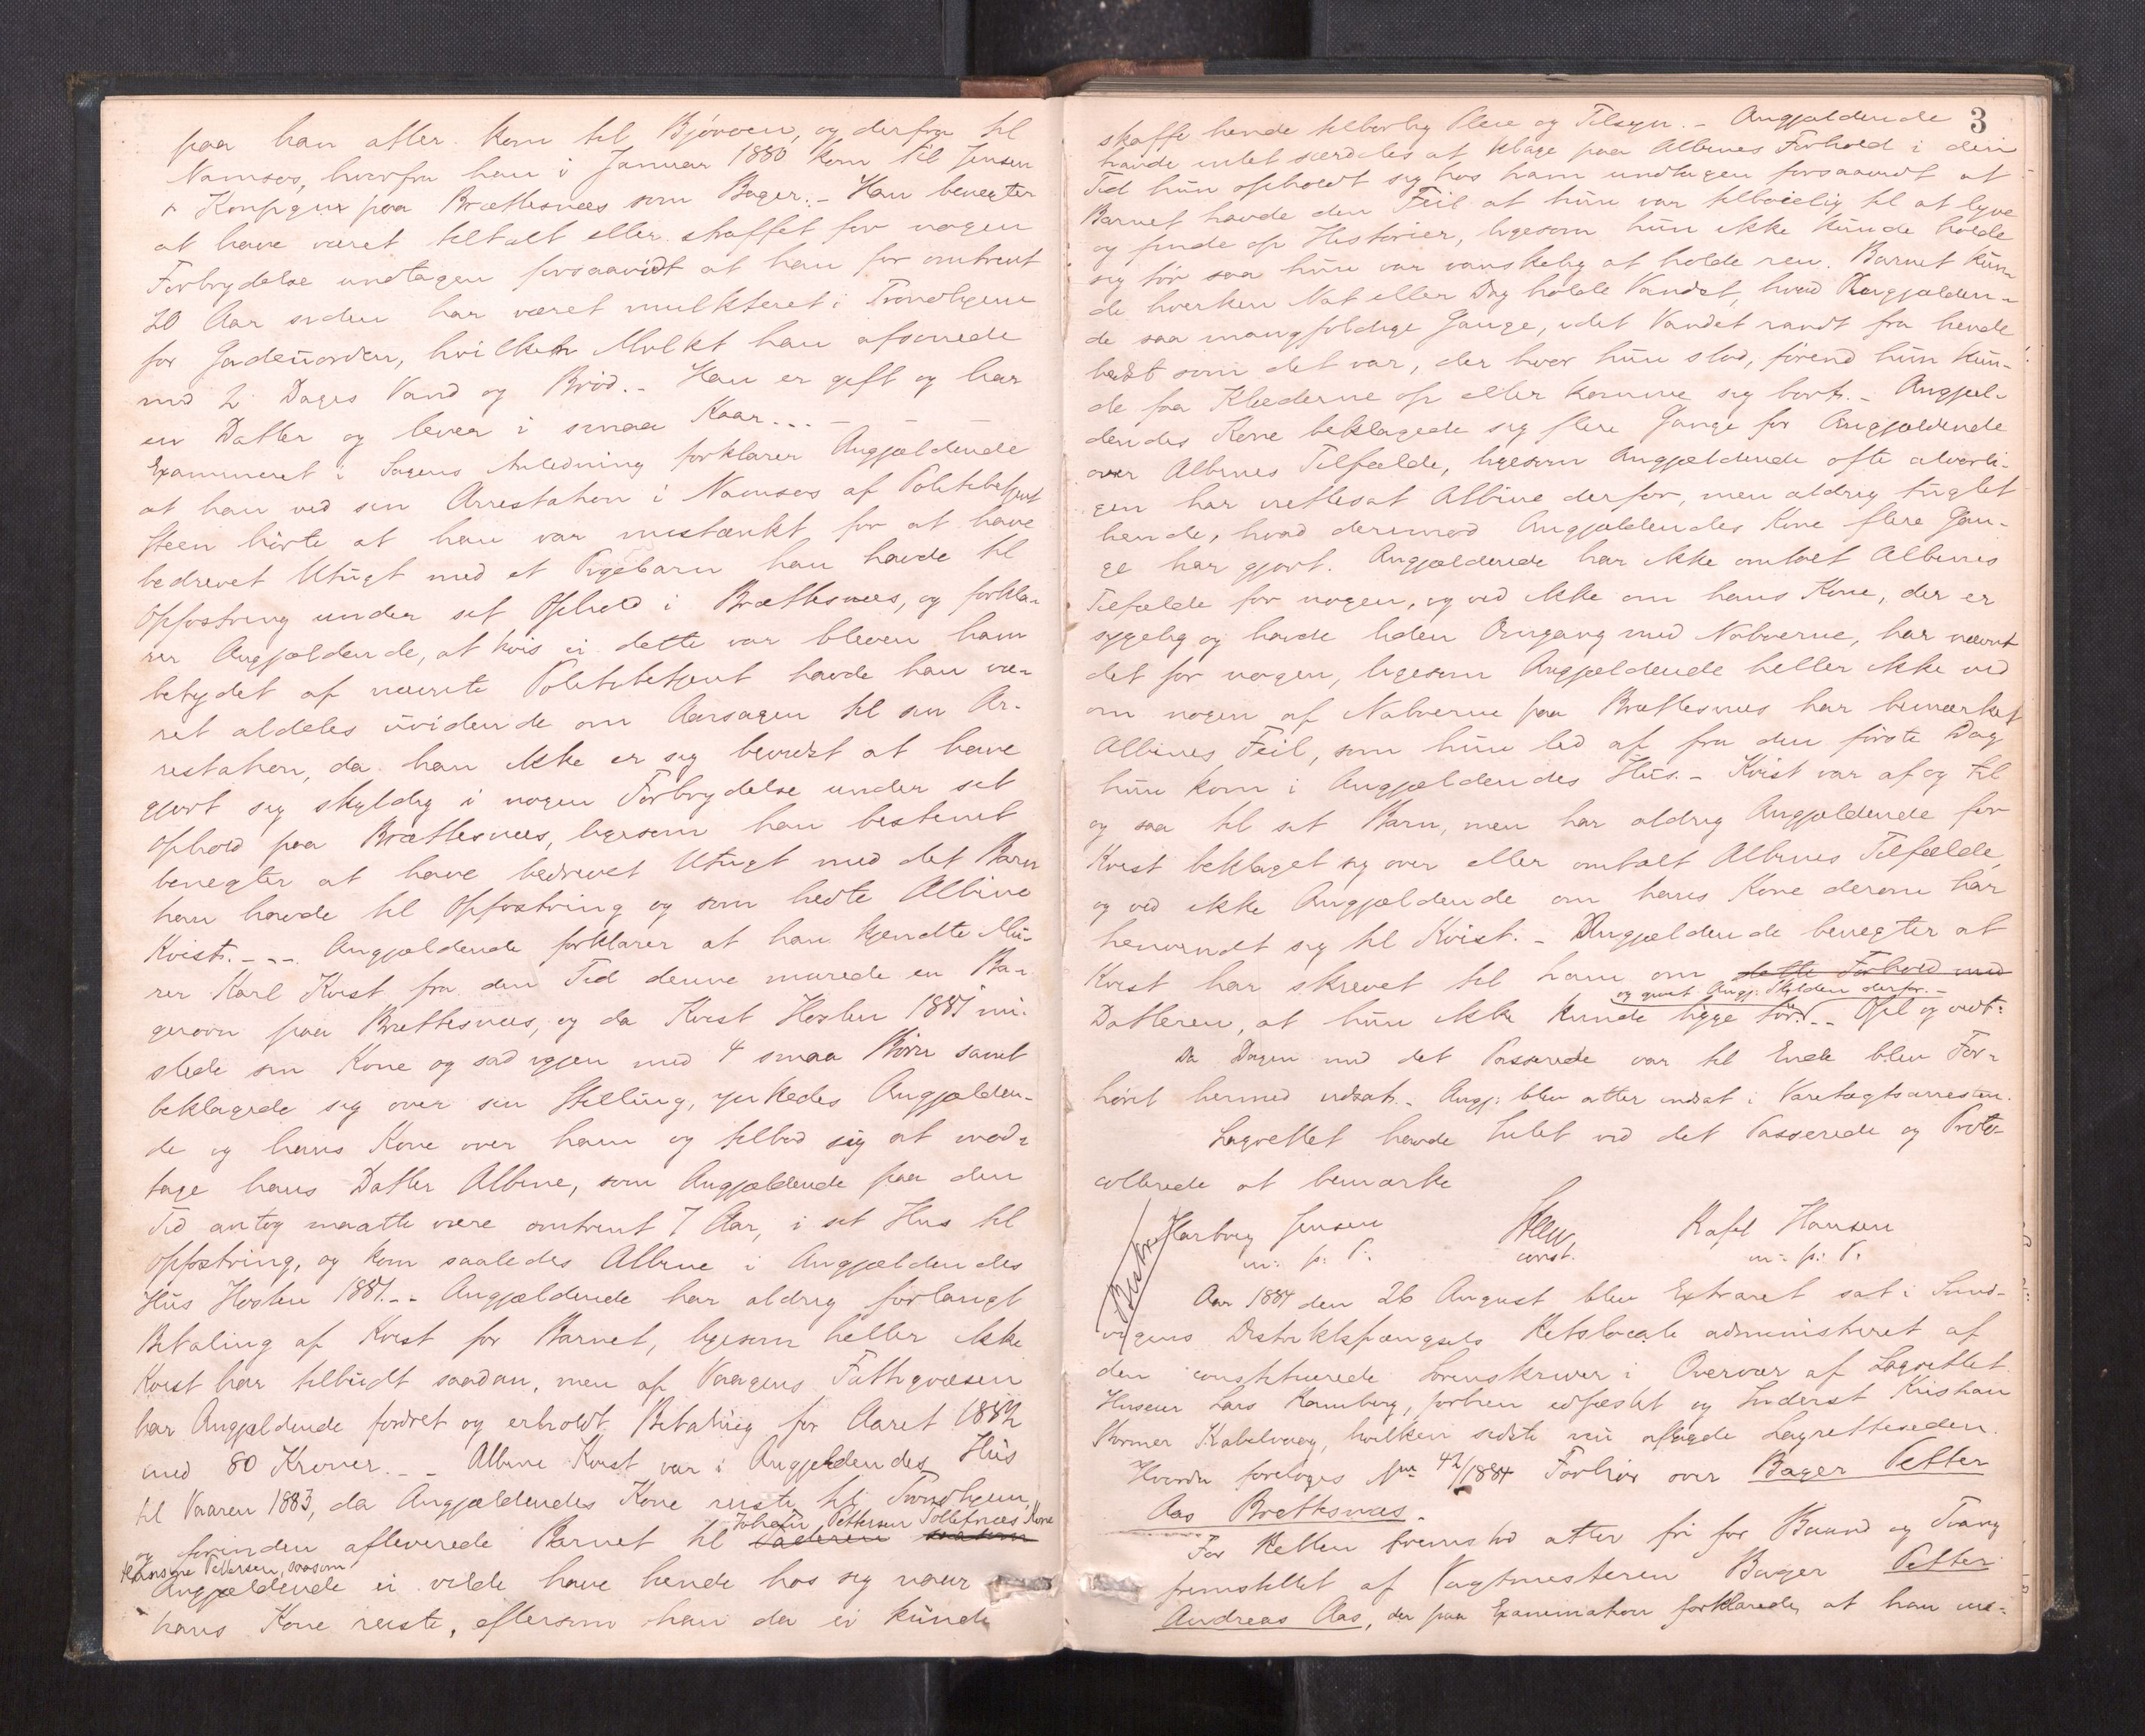 paa han atter kom til Bjørøen, og derfra til
Namsos, hvorfra han i Januar 1880 kom til Jensen
& Kompgni paa Brættesnæs som Bager. - Han benegter
at have været tiltalt eller straffet for nogen
Forbrydelse undtagen forsaavidt at han for omtrent
20 Aar siden har været mulkteret i Trondhjem
for Gadeuorden, hvilken Mulkt han afsonede
med 2 Dages Vand og Brød. - Han er gift og har
en Datter og lever i smaa Kaar... -
Examineret i Sagens Anledning forklarer Angjældende
at han ved sin Arrestation i Namsos af Politibetjent
Steen hørte at han var mistænkt for at have
bedrevet Utugt med et Pigebarn han havde til
Opfostring under sit Ophold i Brættesnæs, og forkla-
rer Angjældende, at hvis ei dette var bleven ham
betydet af nævnte Politibetjent havde han væ-
ret aldeles uvidende om Aarsagen til sin Ar-
restation, da han ikke er sig bevidst at have
gjort sig skyldig i nogen Forbrydelse under sit
Ophold paa Brættesnæs, ligesom han bestemt
benegter at have bedrevet Utugt med det Barn
han havde til Opfostring og som hedte Albine
Kvist. - - -. Angjældende forklarer at han kjendte Mu-
rer Karl Kvist fra den Tid denne murede en Ba-
gerovn paa Brættesnæs, og da Kvist Høsten 1881 mi-
stede sin Kone og sad igjen med 4 smaa Børn samt
beklagede sig over sin Stilling, ynkedes Angjælden-
de og hans Kone over ham og tilbød sig at mod-
tage hans Datter Albine, som Angjældende paa den
Tid antog maatte være omtrent 7 Aar, i sit Hus til
Opfostring, og kom saaledes Albine i Angjældendes
Hus Høsten 1881. - - Angjældende har aldrig forlangt
Betaling af Kvist for Barnet, ligesom heller ikke
Kvist har tilbudt saadan, men af Vaagens Fattigvæsen
har Angjældende fordret og erholdt Betaling for Aaret 1882
med 80 Kroner. - - Albine Kvist var i Angjældendes Hus
til Vaaren 1883, da Angjældendes Kone reiste til Trondhjem,
Johan Pettersen Kone
og forinden afleverede Barnet til Faderen saasom
Hansine Pedersen, saasom
Angjældende ei vilde have hende hos sig naar
hans Kone reiste, eftersom han da ei kunde
3
skaffe hende tilbørlig Pleie og Tilsyn. - Angjældende
havde intet særdeles at klage paa Albines Forhold i den
Tid hun opholdt sig hos ham undtagen forsaavidt at
Barnet havde den Feil at hun var tilbøielig til at lyve
og finde op Historier, ligesom hun ikke kunde holde
sig tør saa hun var vanskelig at holde ren. Barnet kun-
de hverken Nat eller Dag holde Vandet, hvad Angjælden-
de saa mangfoldige Gange, idet Vandet randt fra hende
bedst som det var, der hvor hun stod, førend hun kun-
de faa Klæderne op eller komme sig bort. - Angjæl-
dendes Kone beklagede sig flere Gange for Angjældende
over Albines Tilfælde, ligesom Angjældende ofte alvorli-
gen har irettesat Albine derfor, men aldrig tugtet
hende, hvad derimod Angjældendes Kone flere Gan-
ge har gjort. Angjældende har ikke omtalt Albines
Tilfælde for nogen, og ved ikke om hans Kone, der er
sygelig og havde liden Omgang med Naboerne, har nævnt
det for nogen, ligesom Angjældende heller ikke ved
om nogen af Naboerne paa Brættesnæs har bemærket
Albines Feil, som hun led af fra den første Dag
hun kom i Angjældendes Hus. - Kvist var af og til
og saa til sit Barn, men har aldrig Angjældende for
Kvist beklaget sig over eller omtalt Albines Tilfælde,
og ved ikke Angjældende om hans Kone derom har
henvendt sig til Kvist. - Angjældende benegter at
Kvist har skrevet til ham om dette Forhold med
og givet Angj: Skylden derfor. -
Datteren, at hun ikke kunde ligge tør. - - Opl og vedt.
Da Dagen med det Passerede var til Ende blev For-
høret hermed udsat. - Angj: blev atter indsat i Varetægtsarresten.
Lagrettet havde Intet ved det Passerede og Proto-
collerede at bemærke
Hartvig Jensen Steen Rafel Hansen
m: p: P. const. m: p: P.
Aar 1884 den 26 August blev Extraret sat i Svol-
værgens Distriktsfængsels Retslocale administreret af
den constituerede Sorenskriver i Overvær af Lagrettet
Husmr Lars Ramberg, forhen edfæstet og Inderst Kristian
Stormer Kabelvaag, hvilken sidste nu aflagde Lagretteseden.
Hvorda foretoges No 42/1884 Forhør over Bager Petter
Aas Brettesnæs.
For Retten fremstod atter fri for Baand og Tvang
fremstillet af Vagtmesteren Bager Petter
Andreas Aas, der paa Examination forklarede, at han ved-